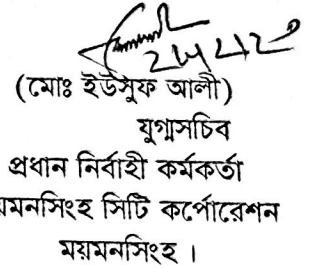 (মোঃ ইউসুফ আলী)
যুগ্মসচিব
প্রধান নির্বাহী কর্মকর্তা
ময়মনসিংহ সিটি কর্পোরেশন
ময়মনসিংহ ।